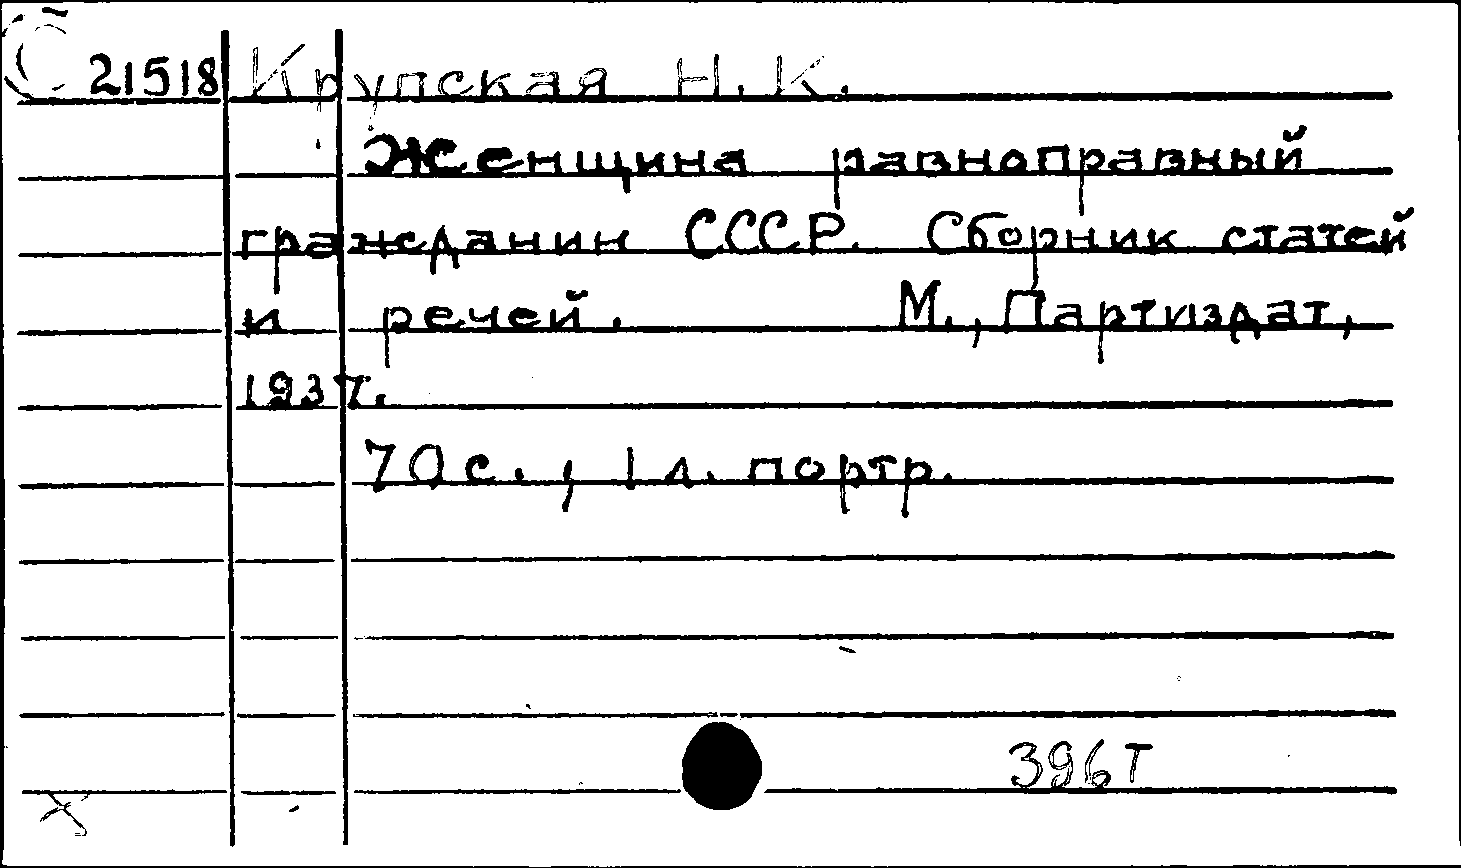 С 21518 Крупская Н. К.
Женщина равноправный
гражданин СССР. Сборник статей
и речей. М., Партиздат,
1937.
70 с., 1 л. портр.
396Т